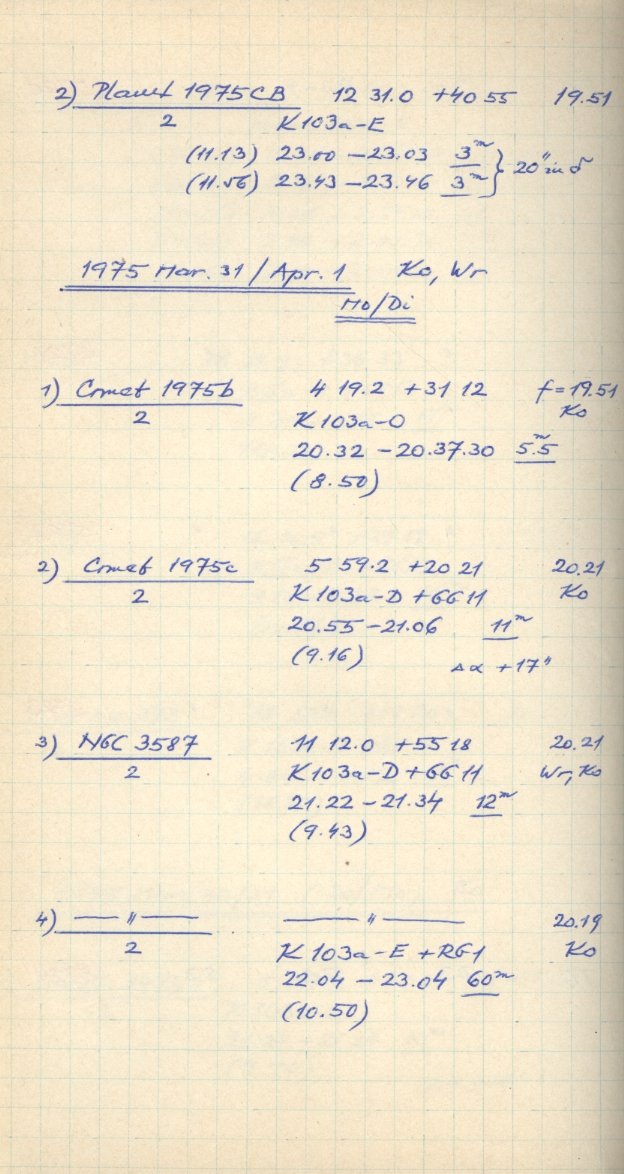 2) Planet 1975CB 12 31.0 +40 55 19.51
2 K103a-E
(11.13) 23.00 – 23.03 3ᵐ
(11.56) 23.43 – 23.46 3ᵐ } 20" in δ
1975 Mar. 31 / Apr. 1 Ko, Wr
Mo/Di
1) Comet 1975b 4 19.2 +31 12 f = 19.51
2 K103a-O Ko
20.32 – 20.37.30 5.5ᵐ
(8.50)
2) Comet 1975c 5 59.2 +20 21 20.21
2 K103a-D + GG11 Ko
20.55 – 21.06 11ᵐ
(9.16) Δα +17"
3) NGC 3587 11 12.0 +55 18 20.21
2 K103a-D + GG11 Wr, Ko
21.22 – 21.34 12ᵐ
(9.43)
4) — " — — " — 20.19
2 K103a-E + RG1 Ko
22.04 – 23.04 60ᵐ
(10.50)